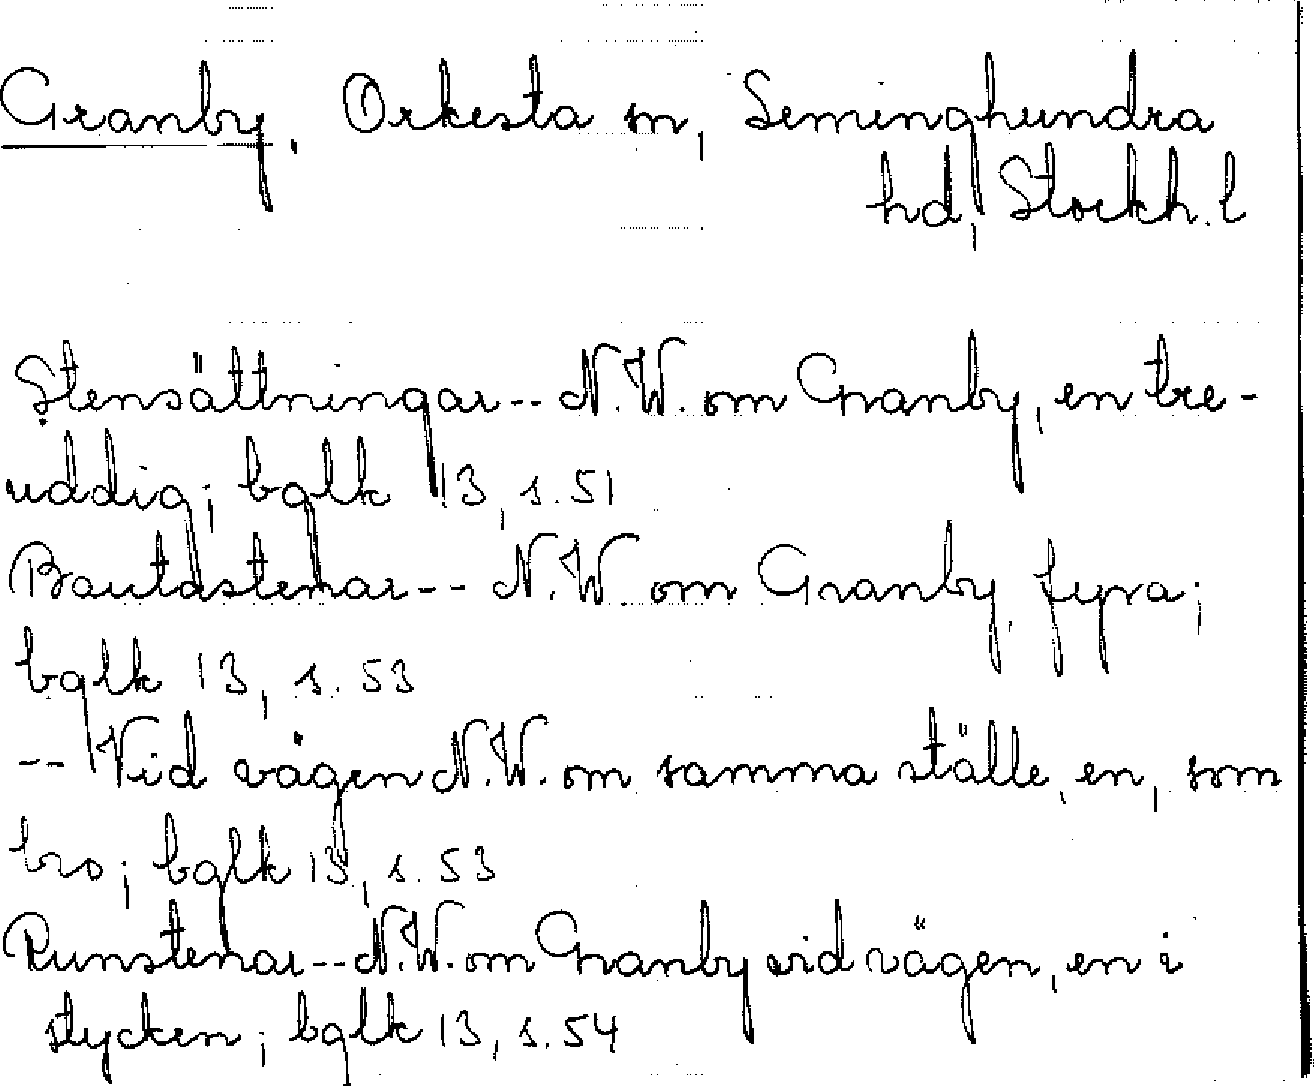 Granby. Orkesta sn, Seminghundra
hd, Stockh. l
Stensättningar -- N.W. om Granby, en tre-
uddig; bglk 13, s. 51
Bautastenar -- N.W om Granby, fyra;
bglk 13, s. 53
-- Vid vägen N.W. om samma ställe, en, som
bro; bglk 13, s. 53
Runstenar -- N.W. om Granby vid vägen, en i
stycken; bglk 13, s. 54